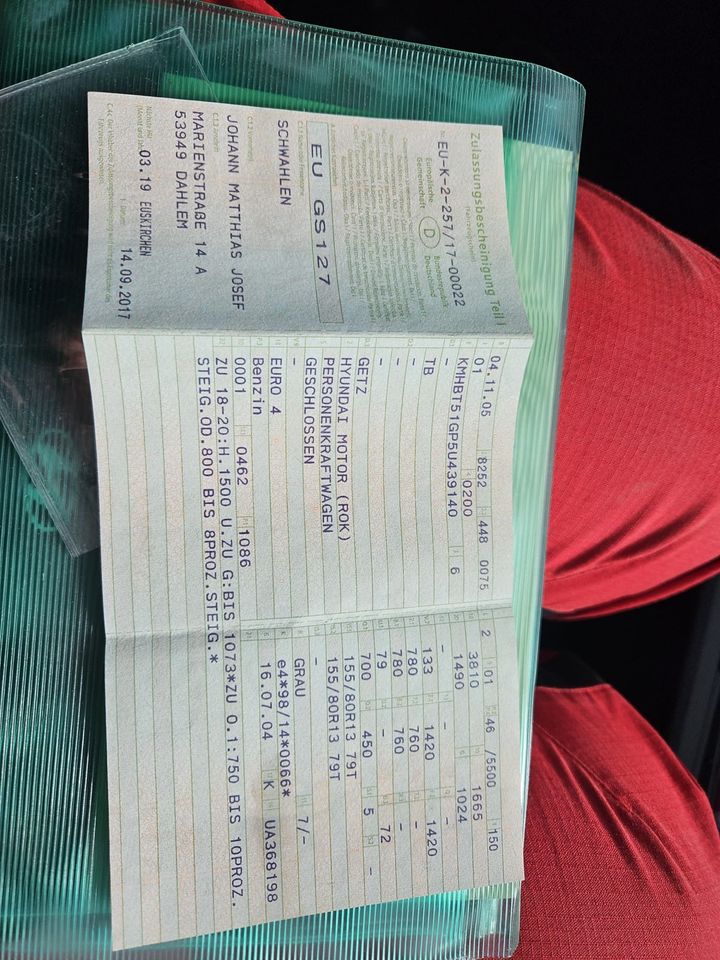 Zulassungsbescheinigung Teil I
(Fahrzeugschein)
Nr. EU-K-2-257/17-00022
Europäische
Gemeinschaft
D
Bundesrepublik
Deutschland
EU GS127
SCHWAHLEN
JOHANN MATTHIAS JOSEF
MARIENSTRAßE 14 A
53949 DAHLEM
03.19 EUSKIRCHEN
14.09.2017
04.11.05 8252 448 0075
01 0200
KMHBT51GP5U439140 6
-
TB
-
-
-
GETZ
HYUNDAI MOTOR (ROK)
PERSONENKRAFTWAGEN
GESCHLOSSEN
-
EURO 4
Benzin
0001 0462 1086
ZU 18-20:H.1500 U.ZU G:BIS 1073*ZU O.1:750 BIS 10PROZ.
STEIG.OD.800 BIS 8PROZ.STEIG.*
2 01 46 /5500 150
3810 1665
1490 1024
- - -
133 1420 1420
780 760 -
780 760 -
79 72
700 450 5 -
155/80R13 79T
155/80R13 79T
-
GRAU 7/-
e4*98/14*0066*
16.07.04 K UA368198